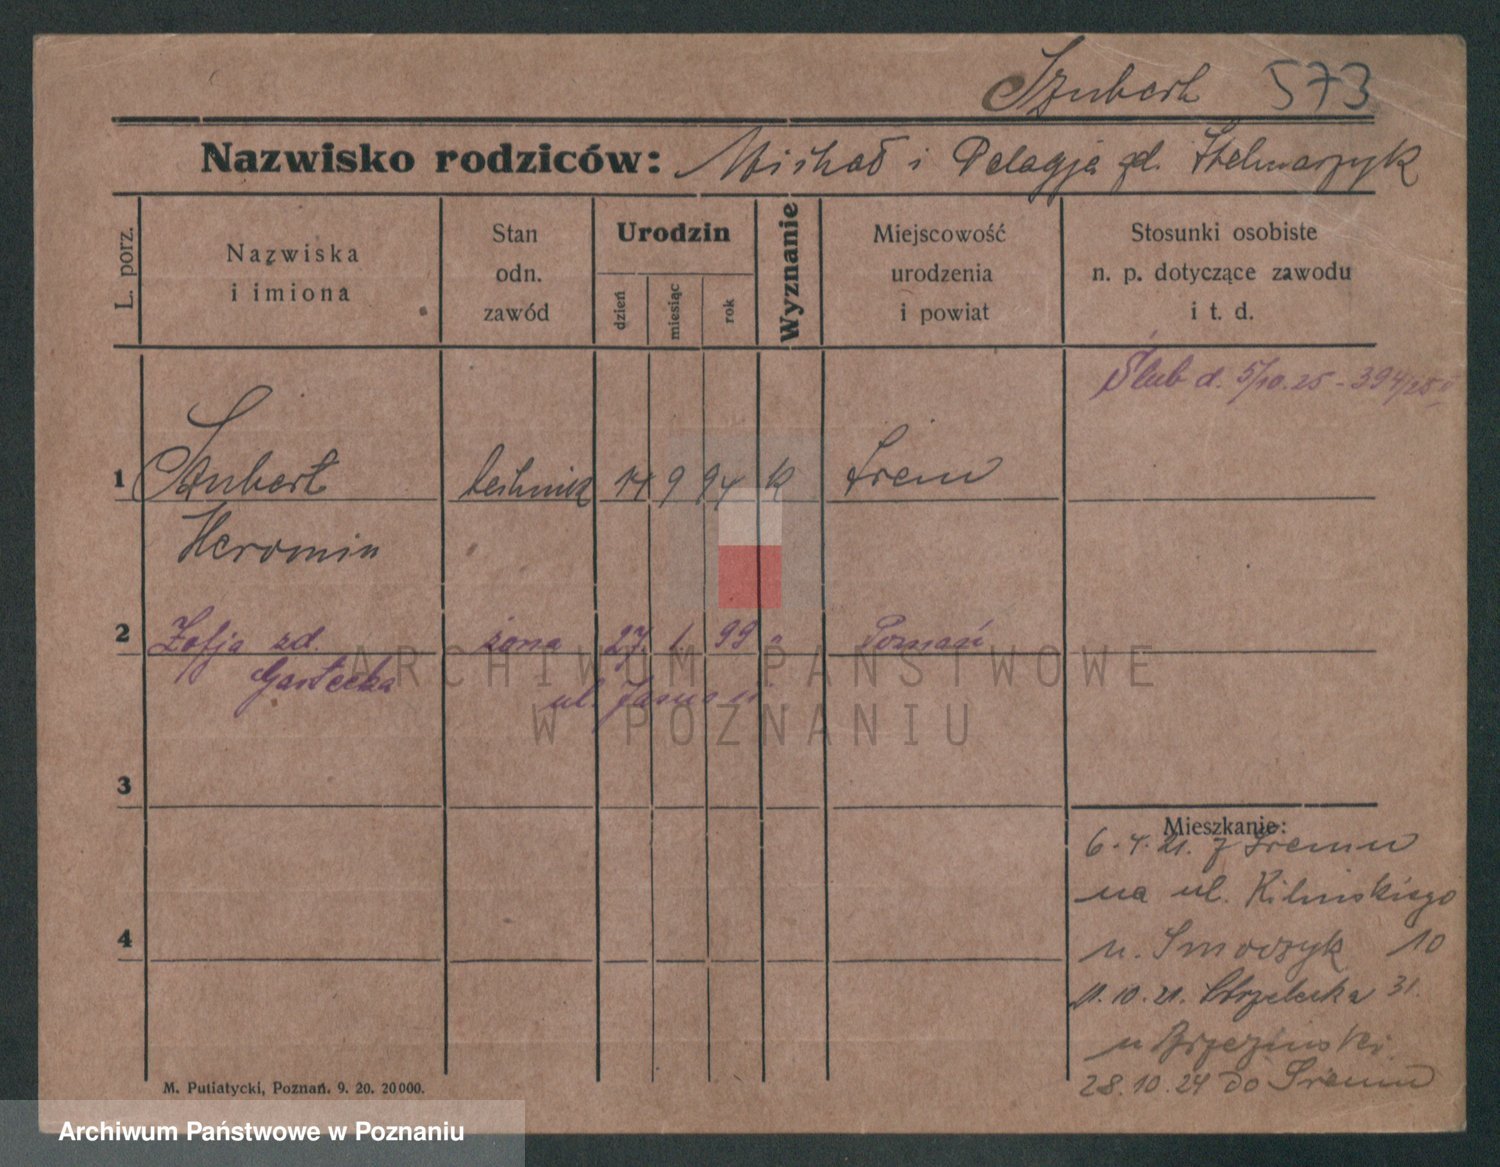 Szubert 573
Nazwisko rodziców: Michał i Pelagja zd. Stelmaszyk
L. porz.
Nazwiska
i imiona
Stan
odn.
zawód
Urodzin
dzień
miesiąc
rok
Wyznanie
Miejscowość
urodzenia
i powiat
Stosunki osobiste
n. p. dotyczące zawodu
i t. d.
Ślub d. 5/10.25 - 394/25
1 Szubert technik 14 9 94 k Śrem
Hieronim
2 Zofja zd. żona 27. 1. 99 " Poznań
Gartecka ul. Jasna 11
3
Mieszkanie:
6.4.21. z Śremu
na ul. Kilińskiego
u. Smoczyk 10
4
11.10.21. Strzelecka 31.
u Brzeziński.
28.10.24 do Śremu
M. Putiatycki, Poznań. 9. 20. 20000.
ARCHIWUM PAŃSTWOWE
W POZNANIU
Archiwum Państwowe w Poznaniu